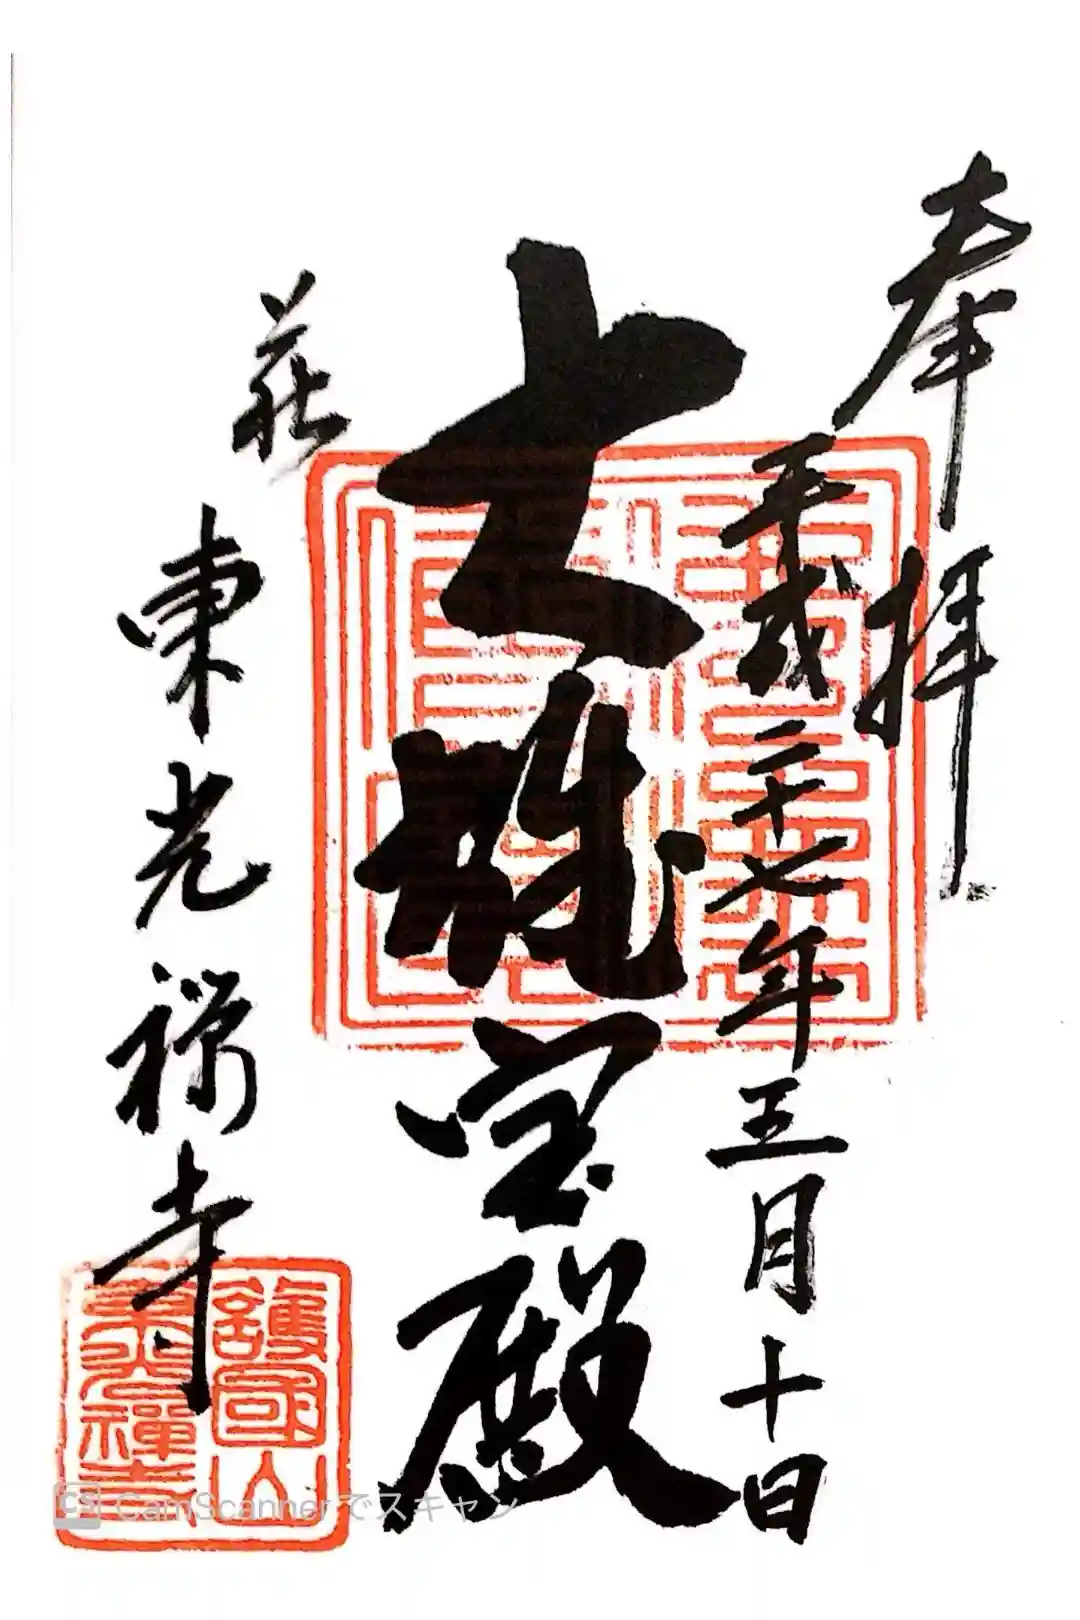 奉拝
平成二十七年五月十日
大雄宝殿
萩
東光禅寺
護國山
東光禅寺
CS CamScannerでスキャン